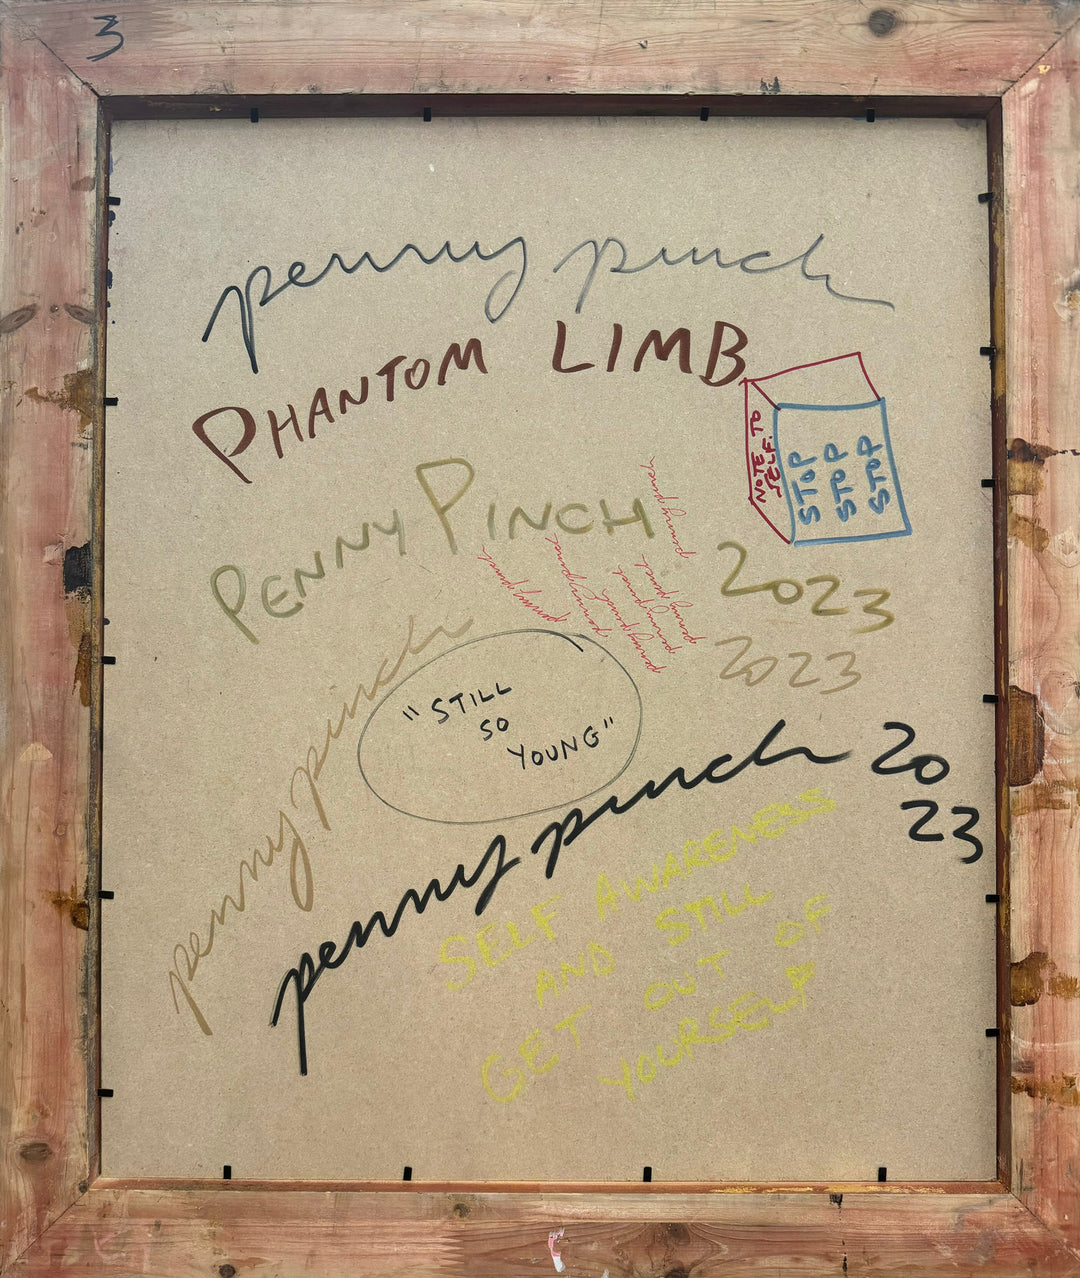 3
penny pinch
PHANTOM LIMB
NOTE TO
SELF:
STOP
STOP
STOP
PENNY PINCH
2023
penny pinch
penny pinch
penny pinch
penny pinch
penny pinch
penny pinch
penny pinch
2023
penny pinch
"STILL
SO
YOUNG"
penny pinch 20
23
SELF AWARENESS
AND STILL
GET OUT OF
YOURSELF